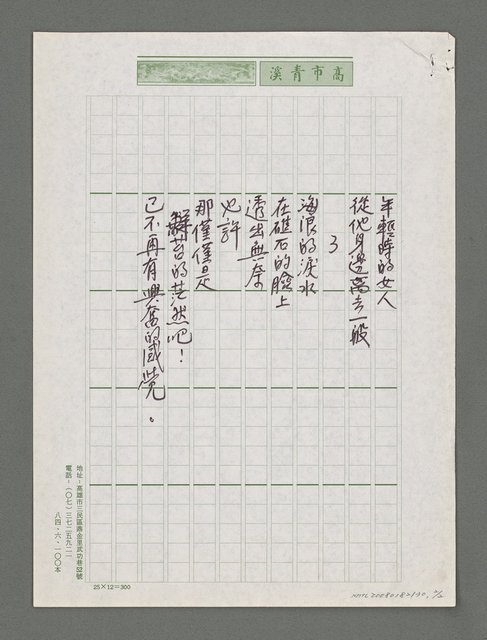 高市青溪
年輕時的女人
從他身邊離去一般
3
海浪的淚水
在礁石的臉上
透出無奈
也許
那僅僅是
蘚苔的茫然吧！
已不再有興奮的感覺。
地址：高雄市三民區鼎金里武功巷52號
電話：（〇七）三七二五九二一
八四、六、一〇〇本
25×12=300